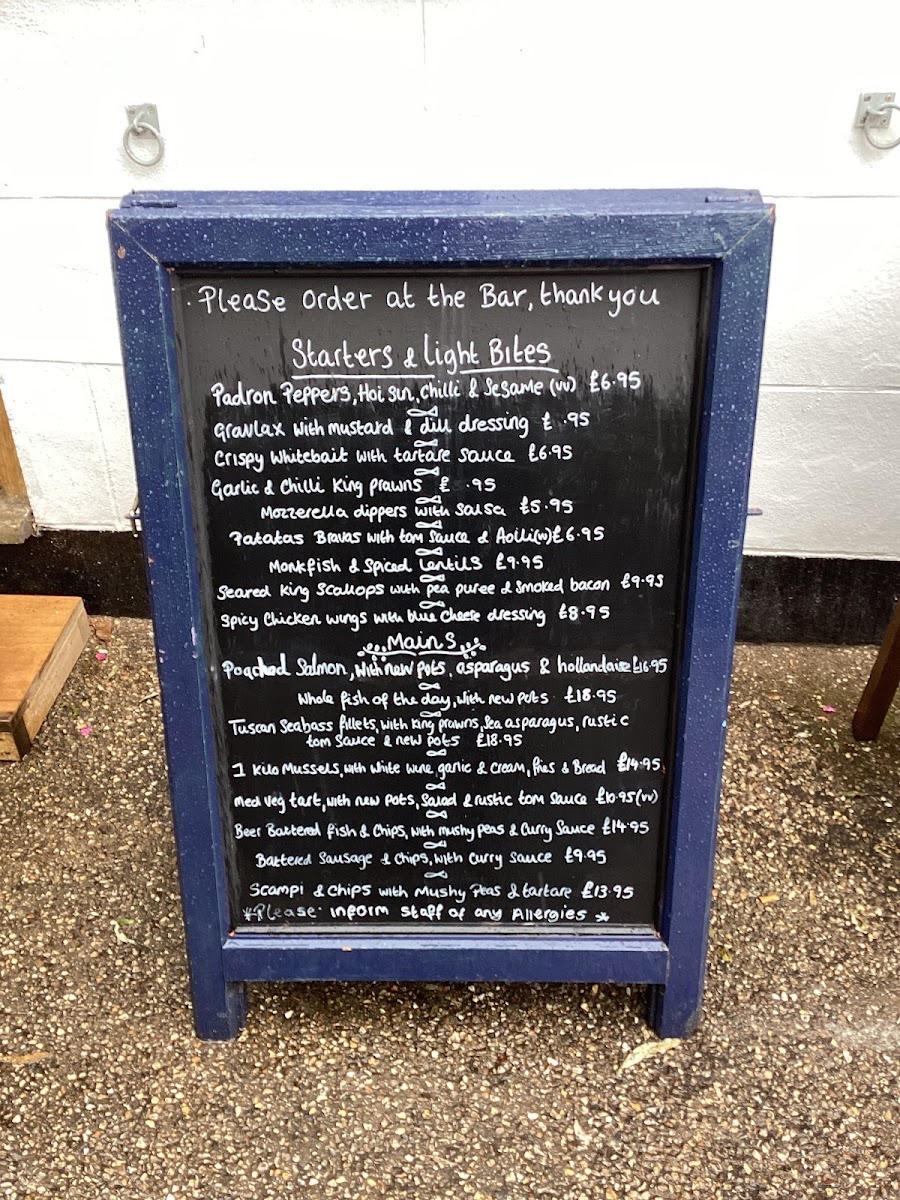 Please order at the Bar, thank you
Starters & Light Bites
Padron Peppers, Hoi sun, Chilli & Sesame (VV) £6.95
Gravlax with mustard & dill dressing £ .95
Crispy Whitebait with tartare sauce £6.95
Garlic & Chilli King Prawns £ .95
Mozzerella dippers with salsa £5.95
Patatas Bravas with tom sauce & Aolli(VV) £6.95
Monkfish & Spiced Lentils £9.95
Seared King Scallops with pea puree & smoked bacon £9.95
Spicy Chicken wings with blue Cheese dressing £8.95
Mains
Poached Salmon, with new pots, asparagus & hollandaise £16.95
Whole fish of the day, with new pots £18.95
Tuscan Seabass fillets, with King prawns, Sea asparagus, rustic
tom Sauce & new pots £18.95
1 Kilo Mussels, with white wine, garlic & cream, fries & Bread £14.95
Med Veg tart, with new pots, Salad & rustic tom Sauce £10.95 (VV)
Beer Battered fish & Chips, with mushy peas & Curry Sauce £14.95
Battered Sausage & Chips, with Curry sauce £9.95
Scampi & Chips with Mushy Peas & tartare £13.95
*Please inform staff of any Allergies *